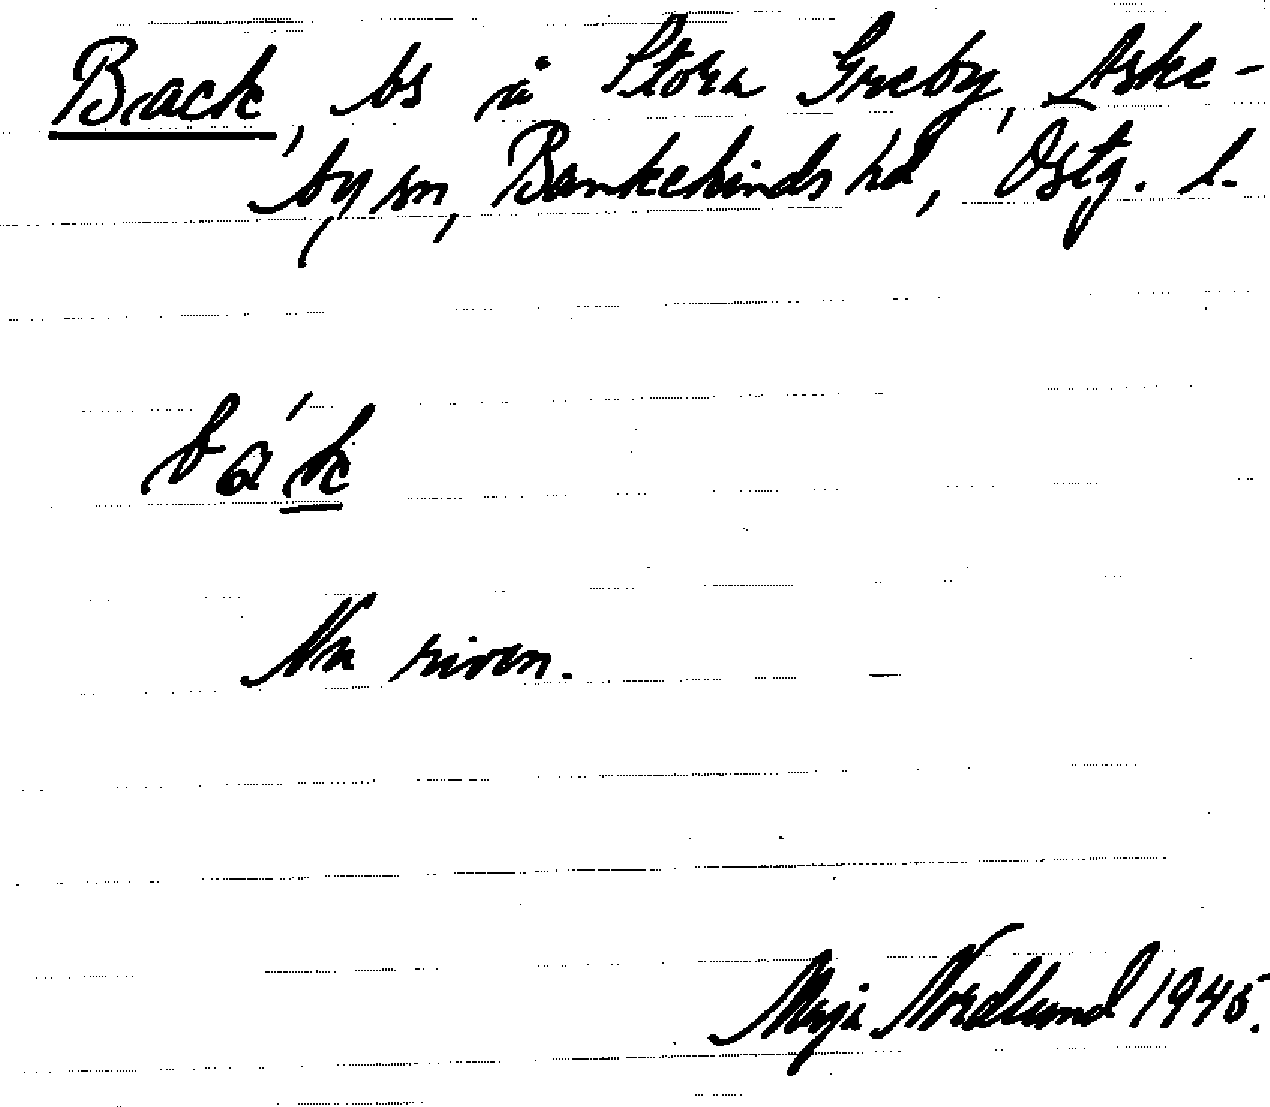 Back, bs å Stora Greby, Aske-
by sn, Bankekinds hd, Östg. l.
ba´k
Nu riven.
Maja Nordlund 1945.